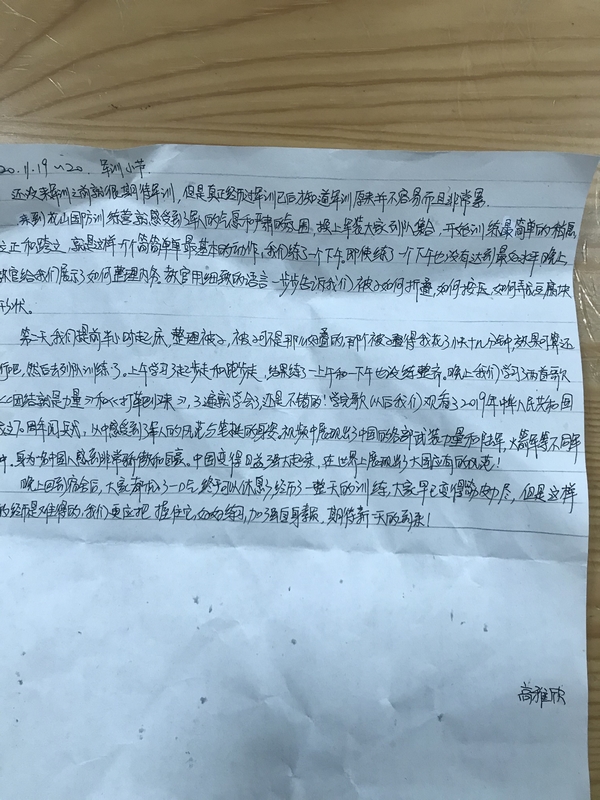 20.11.19~20. 军训小节
还没来军训之前就很期待军训，但是真正经历过军训已后才知道军训原来并不容易而且非常累.
来到龙山国防训练营就感受到军人的气息和严肃的氛围，换上军装大家列队集合，开始训练最简单的稍息
立正和跨立，就是这样一个简简单单最基本的动作，我们练了一个下午，即使练了一个下午也没有达到最好水平.晚上
教官给我们展示了如何整理内务.教官用细致的语言一步步告诉我们被子如何折叠，如何按压，如何弄成豆腐块
形状。
第二天我们提前半小时起床，整理被子，被子可不是那么好叠的，那个被子叠得我花了快十几分钟，效果可算还
行吧，然后去列队训练了。上午学习了走步走和跑步走，结果练一上午和一下午也没练整齐。晚上我们学习了两首歌
《团结就是力量》和《打靶归来》，3遍就学会了还是不错的！学完歌以后我们观看了2019年中华人民共和国
成立70周年阅兵式，从中感受到了军人的风范与笔挺的身姿，视频中展现出了中国的全部武装力量和陆军，火箭军等不同军
中，身为中国人感到非常骄傲和自豪。中国变得日益强大起来，在世界上展现出了大国应有的风范！
晚上回到宿舍后，大家都松了一口气，终于可以休息了，经历了一整天的训练，大家早已变得筋疲力尽，但是这样
的经历是难得的，我们更应把握住它，好好练习，加强自身素质，期待新一天的到来！
高雅欣